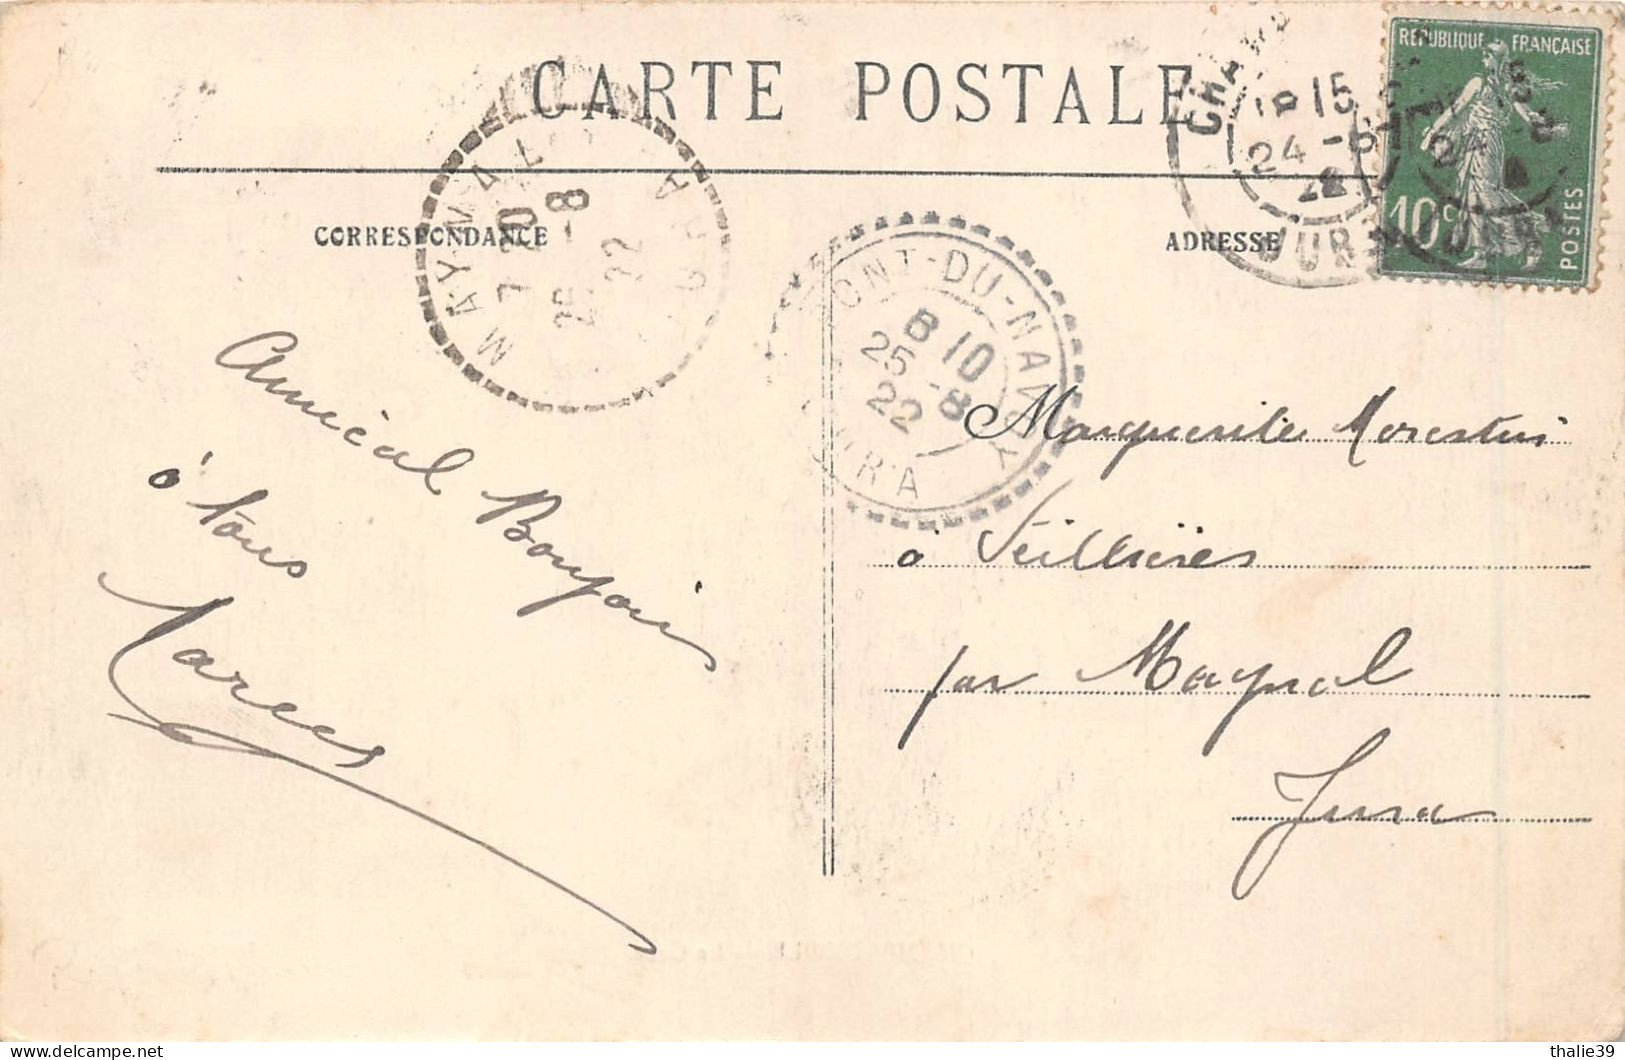 CARTE POSTALE
RÉPUBLIQUE FRANÇAISE
10c
POSTES
15
24 -8
22
JURA
CORRESPONDANCE
ADRESSE
MAYNAL
7 20
25 -8
22
JURA
PONT-DU-NAVOY
8 10
25 -8
22
JURA
Amical Bonjour
à tous
Marcel
Marguerite Morestin
à Seillières
par Maynal
Jura
thalie39